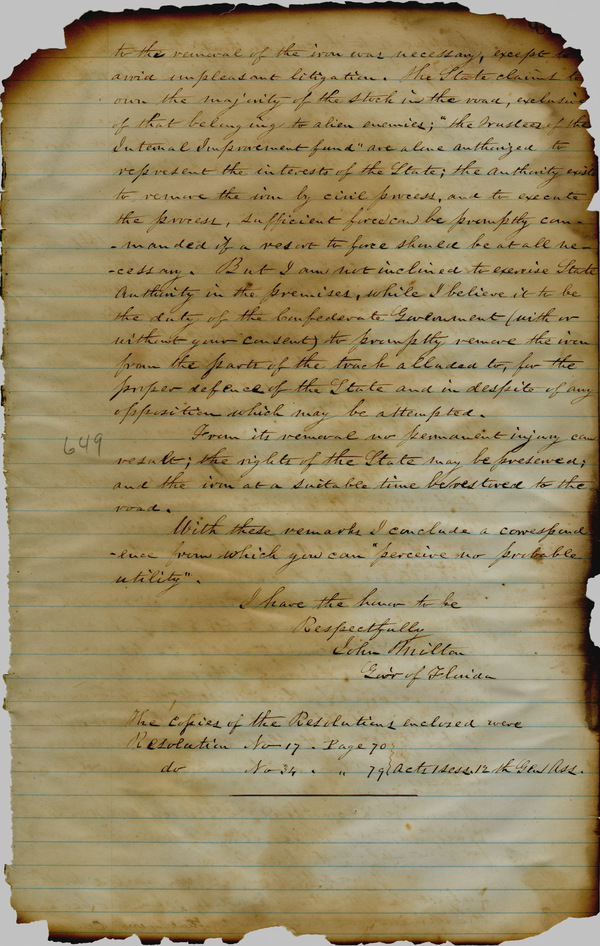 to the removal of the iron was necessary, except to
avoid unpleasant litigation. The State claims to
own the majority of the stock in the road, exclusive
of that belonging to alien enemies; "the trustees of the
Internal Improvement fund" are alone authorized to
represent the interests of the State; the authority exists
to remove the iron by civil process, and to execute
the process, sufficient force can be promptly com-
-manded if a resort to force should be at all ne-
-cessary. But I am not inclined to exercise State
Authority in the premises, while I believe it to be
the duty of the Confederate Government (with or
without your consent) to promptly remove the iron
from the parts of the track alluded to, for the
proper defence of the State and in despite of any
opposition which may be attempted.
From its removal no permanent injury can
649
result; the rights of the State may be preserved;
and the iron at a suitable time be restored to the
road.
With these remarks I conclude a correspond
-ence from which you can "perceive no probable
utility".
I have the honor to be
Respectfully
John Milton
Gov'r of Florida
The copies of the Resolutions enclosed were
Resolution No 17. Page 70
do No 34. " 79 Acts 1 sess. 12th Genl Ass.